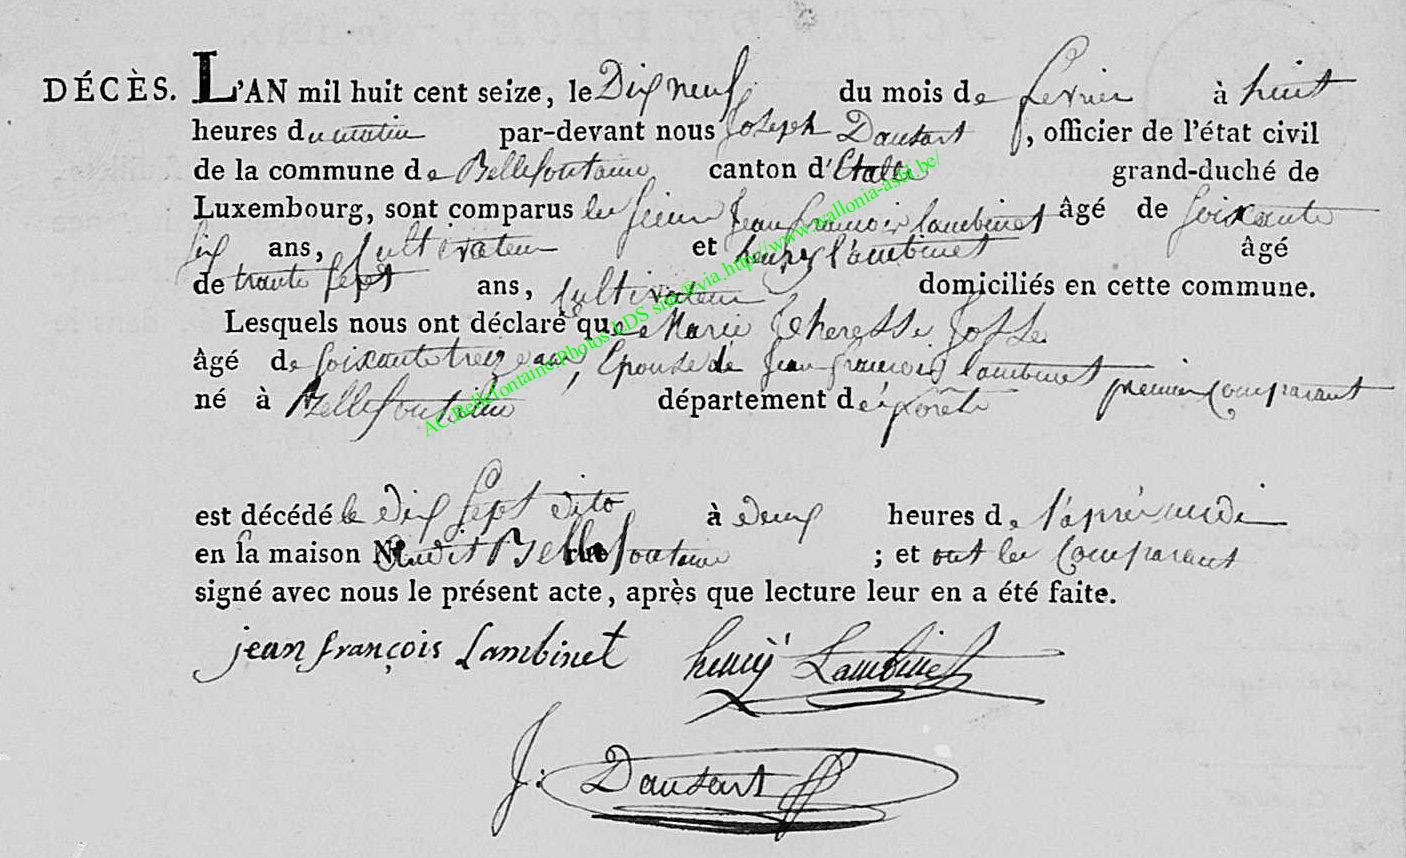 DÉCÈS. L'AN mil huit cent seize, le Dix neuf du mois de fevrier à huit
heures du matin par-devant nous Joseph Dausart, officier de l'état civil
de la commune de Bellefontaine canton d'Etalle grand-duché de
Luxembourg, sont comparus les sieurs Jean francois Lambinet âgé de soixante
six ans, Cultivateur et henry Lambinet âgé
de trante sept ans, Cultivateur domiciliés en cette commune.
Lesquels nous ont déclaré que Marie Theresse Josse
âgé de soixante treize ans, Epouse de Jean francois Lambinet premier Comparant
né à Bellefontaine département de forêts
est décédé le dix sept dito à deux heures de l'aprés midi
en la maison Nº audit Bellefontaine ; et ont les Comparant
signé avec nous le présent acte, après que lecture leur en a été faite.
jean françois Lambinet henry Lambinet
J: Dausart
AC Bellefontaine photos LDS site via http://www.wallonia-asbl.be/